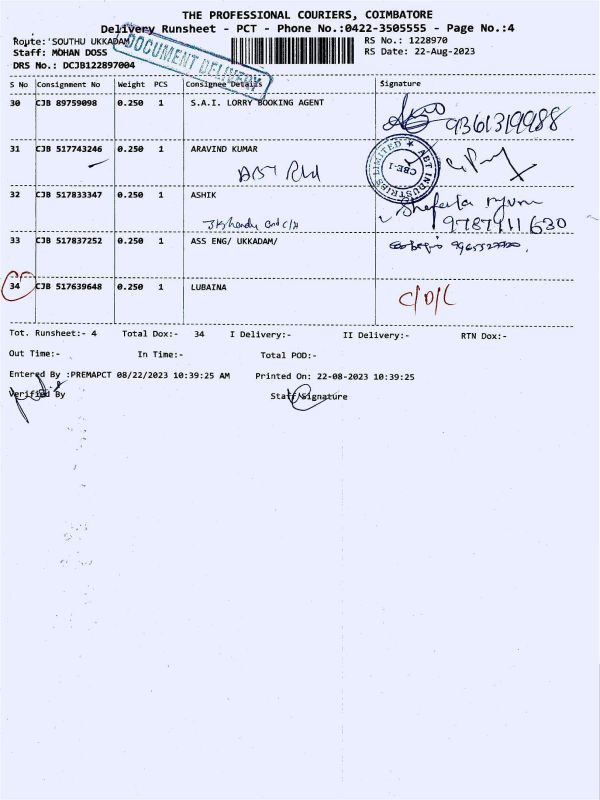 THE PROFESSIONAL COURIERS, COIMBATORE
Delivery Runsheet - PCT - Phone No.:0422-3505555 - Page No.:4
Route:'SOUTHU UKKADAM
RS No.: 1228970
Staff: MOHAN DOSS
RS Date: 22-Aug-2023
DRS No.: DCJB122897004
DOCUMENT DELIVERY
S No Consignment No Weight PCS Consignee Details Signature
30 CJB 89759098 0.250 1 S.A.I. LORRY BOOKING AGENT
9361319988
31 CJB 517743246 0.250 1 ARAVIND KUMAR
ABT INDUSTRIES LIMITED ★
CBE-1
32 CJB 517833347 0.250 1 ASHIK
9787911630
33 CJB 517837252 0.250 1 ASS ENG/ UKKADAM/
34 CJB 517639648 0.250 1 LUBAINA
C/O/L
Tot. Runsheet:- 4 Total Dox:- 34 I Delivery:- II Delivery:- RTN Dox:-
Out Time:- In Time:- Total POD:-
Entered By :PREMAPCT 08/22/2023 10:39:25 AM Printed On: 22-08-2023 10:39:25
Verified By Staff/Signature